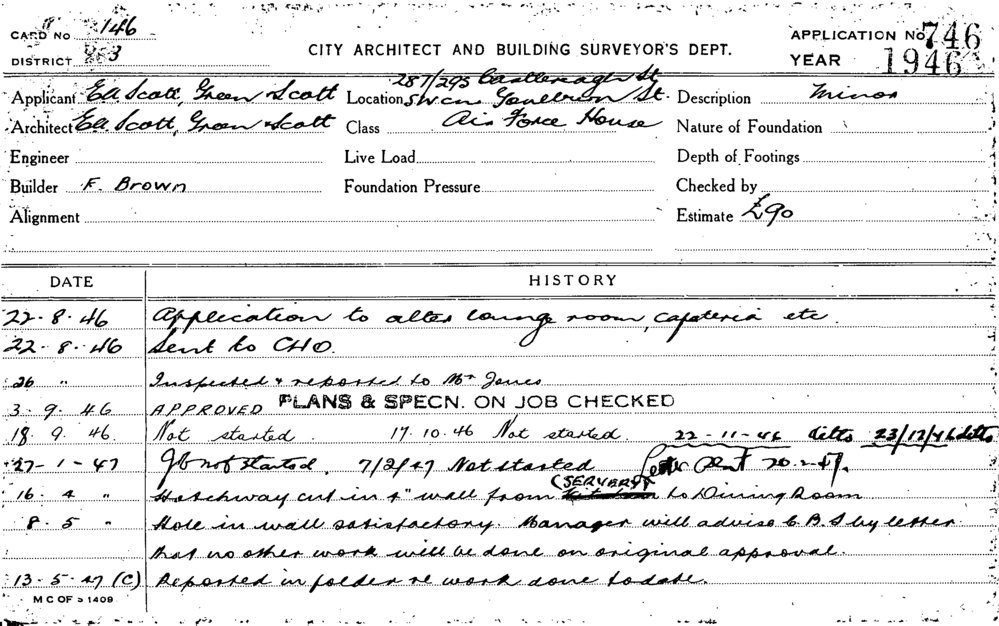 CARD No 146
DISTRICT 3
CITY ARCHITECT AND BUILDING SURVEYOR'S DEPT.
APPLICATION No 746
YEAR 1946
287/295 Castlereagh St
Applicant Ed. Scott, Green & Scott Location SW cnr Goulburn St. Description Minor
Architect Ed. Scott, Green & Scott Class Air Force House Nature of Foundation
Engineer Live Load Depth of Footings
Builder F. Brown Foundation Pressure Checked by
Alignment Estimate £90
DATE HISTORY
22-8-46 Application to alter lounge room, cafeteria etc.
22-8-46 Sent to CHO.
26 " Inspected & reported to Mr Jones
3-9-46 APPROVED PLANS & SPECN. ON JOB CHECKED
18.9.46. Not started. 17.10.46 Not started. 22-11-46 ditto 23/12/46 ditto
27-1-47 Job not started. 7/2/47 Not started Letter sent 20.2.47.
(SERVERY)
16.4 " Hatchway cut in 4" wall from Kitchen to Dining Room
8.5 " Hole in wall satisfactory. Manager will advise C.B.S by letter
that no other work will be done on original approval.
13-5-47 (C) Reported in folder re work done todate.
M C OF S 1409